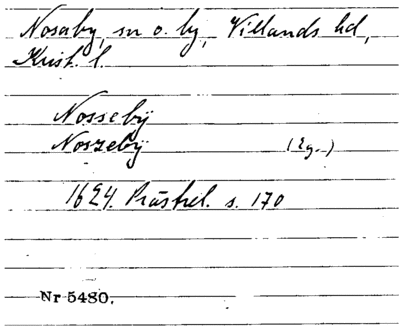 Nosaby, sn o. by, Villands hd,
Krist. l.
Nossebÿ
Noszebÿ (Eg.)
1624. Prästrel. s. 170
Nr 5480.